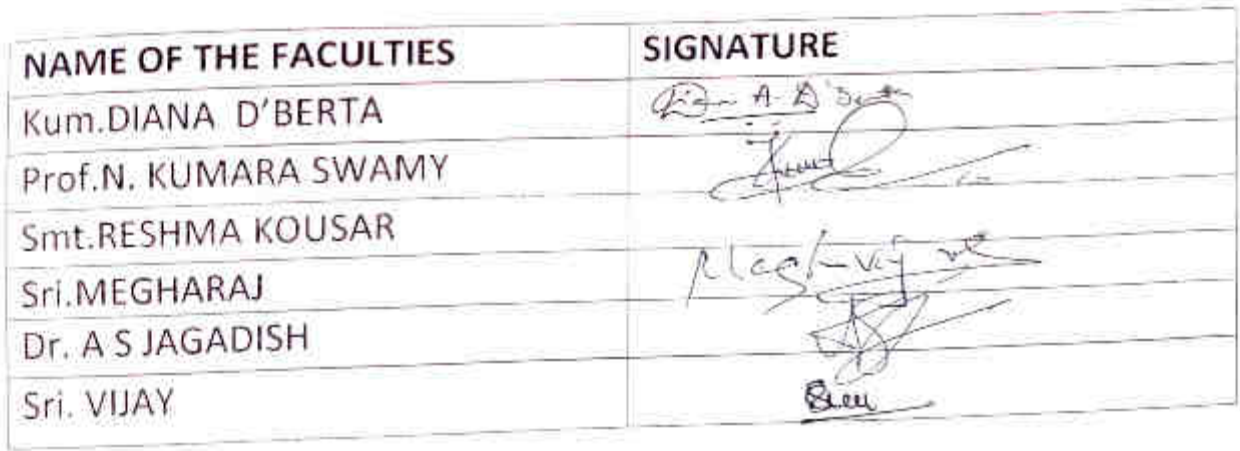 NAME OF THE FACULTIES SIGNATURE
Kum.DIANA D'BERTA
Prof.N. KUMARA SWAMY
Smt.RESHMA KOUSAR
Sri.MEGHARAJ
Dr. A S JAGADISH
Sri. VIJAY